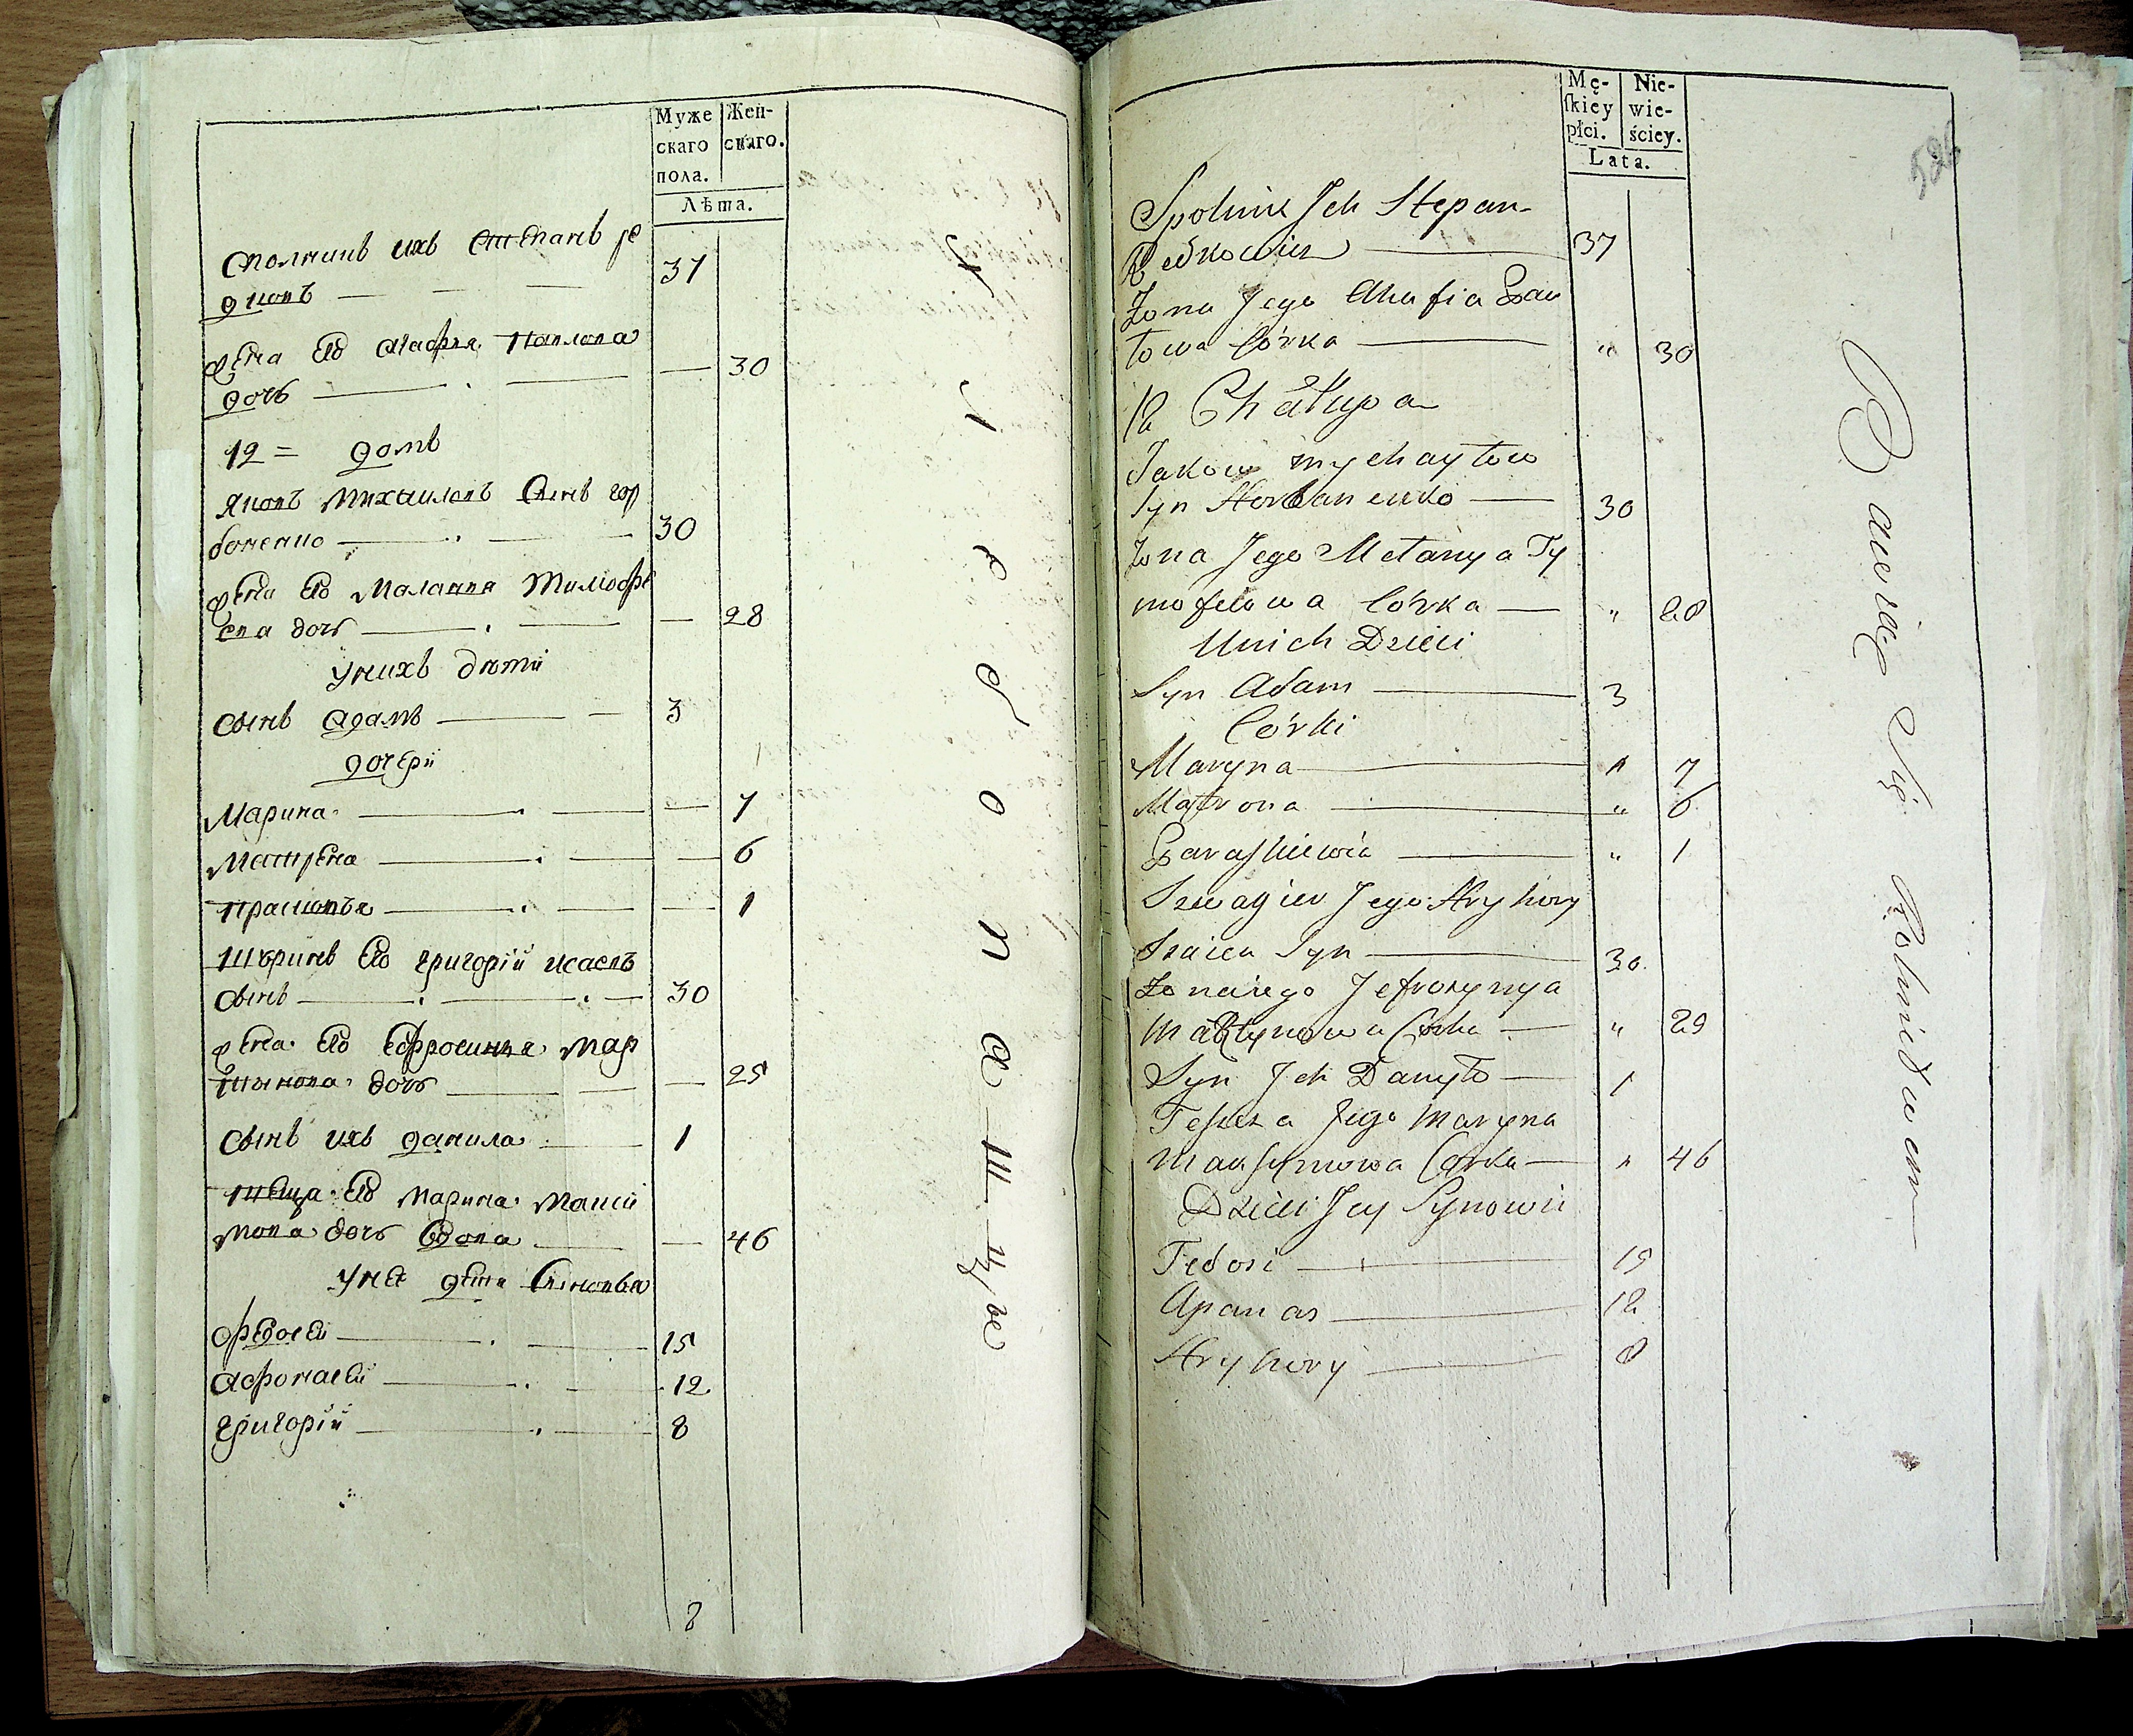 Муже
скаго
пола.
Жен-
скаго.
Лѣта.
сполникъ ихъ Степанъ ре
дковъ 37
жена его Агафия Павлова
дочь 30
12 = домъ
Яковъ Михаиловъ Сынъ гор
боненко 30
жена его Малания Тимофе
ева дочь 28
У нихъ дѣти
сынъ Адамъ 3
дочери
Марина 7
Матрена 6
Прасковъя 1
Шуринъ его григорій исаевъ
сынъ 30
жена его Ефросиния Мар
тинова дочь 25
сынъ ихъ данила 1
теща его Марина Макси
мова дочь вдова 46
У нея дети Сыновья
федосей 15
Афонасей 12
григорій 8
8
Mę-
ſkiey
płci.
Nie-
wie-
ściey.
Lata.
Spolnik Jch Stepan
Redkowicz 37
Żona Jego Ahafia Paw
łowa Córka " 30
12 Chałupa
Jakow Mychayłow
Syn Horbanenko 30
Żona Jego Mełanya Ty
mofeiowa Córka " 28
U nich Dzieci
Syn Adam 3
Córki
Maryna " 7
Matrona " 6
Paraskiewia " 1
Szwagier Jego Hryhory
Isaiea Syn 30
Żona iego Jefrozynya
Martynowa Corka " 29
Syn Jch Danyło 1
Teszcza Jego Maryna
Maksymowa Corka " 46
Dzieci Jey Synowie
Fedosi 15
Apanas 12
Hryhory 8